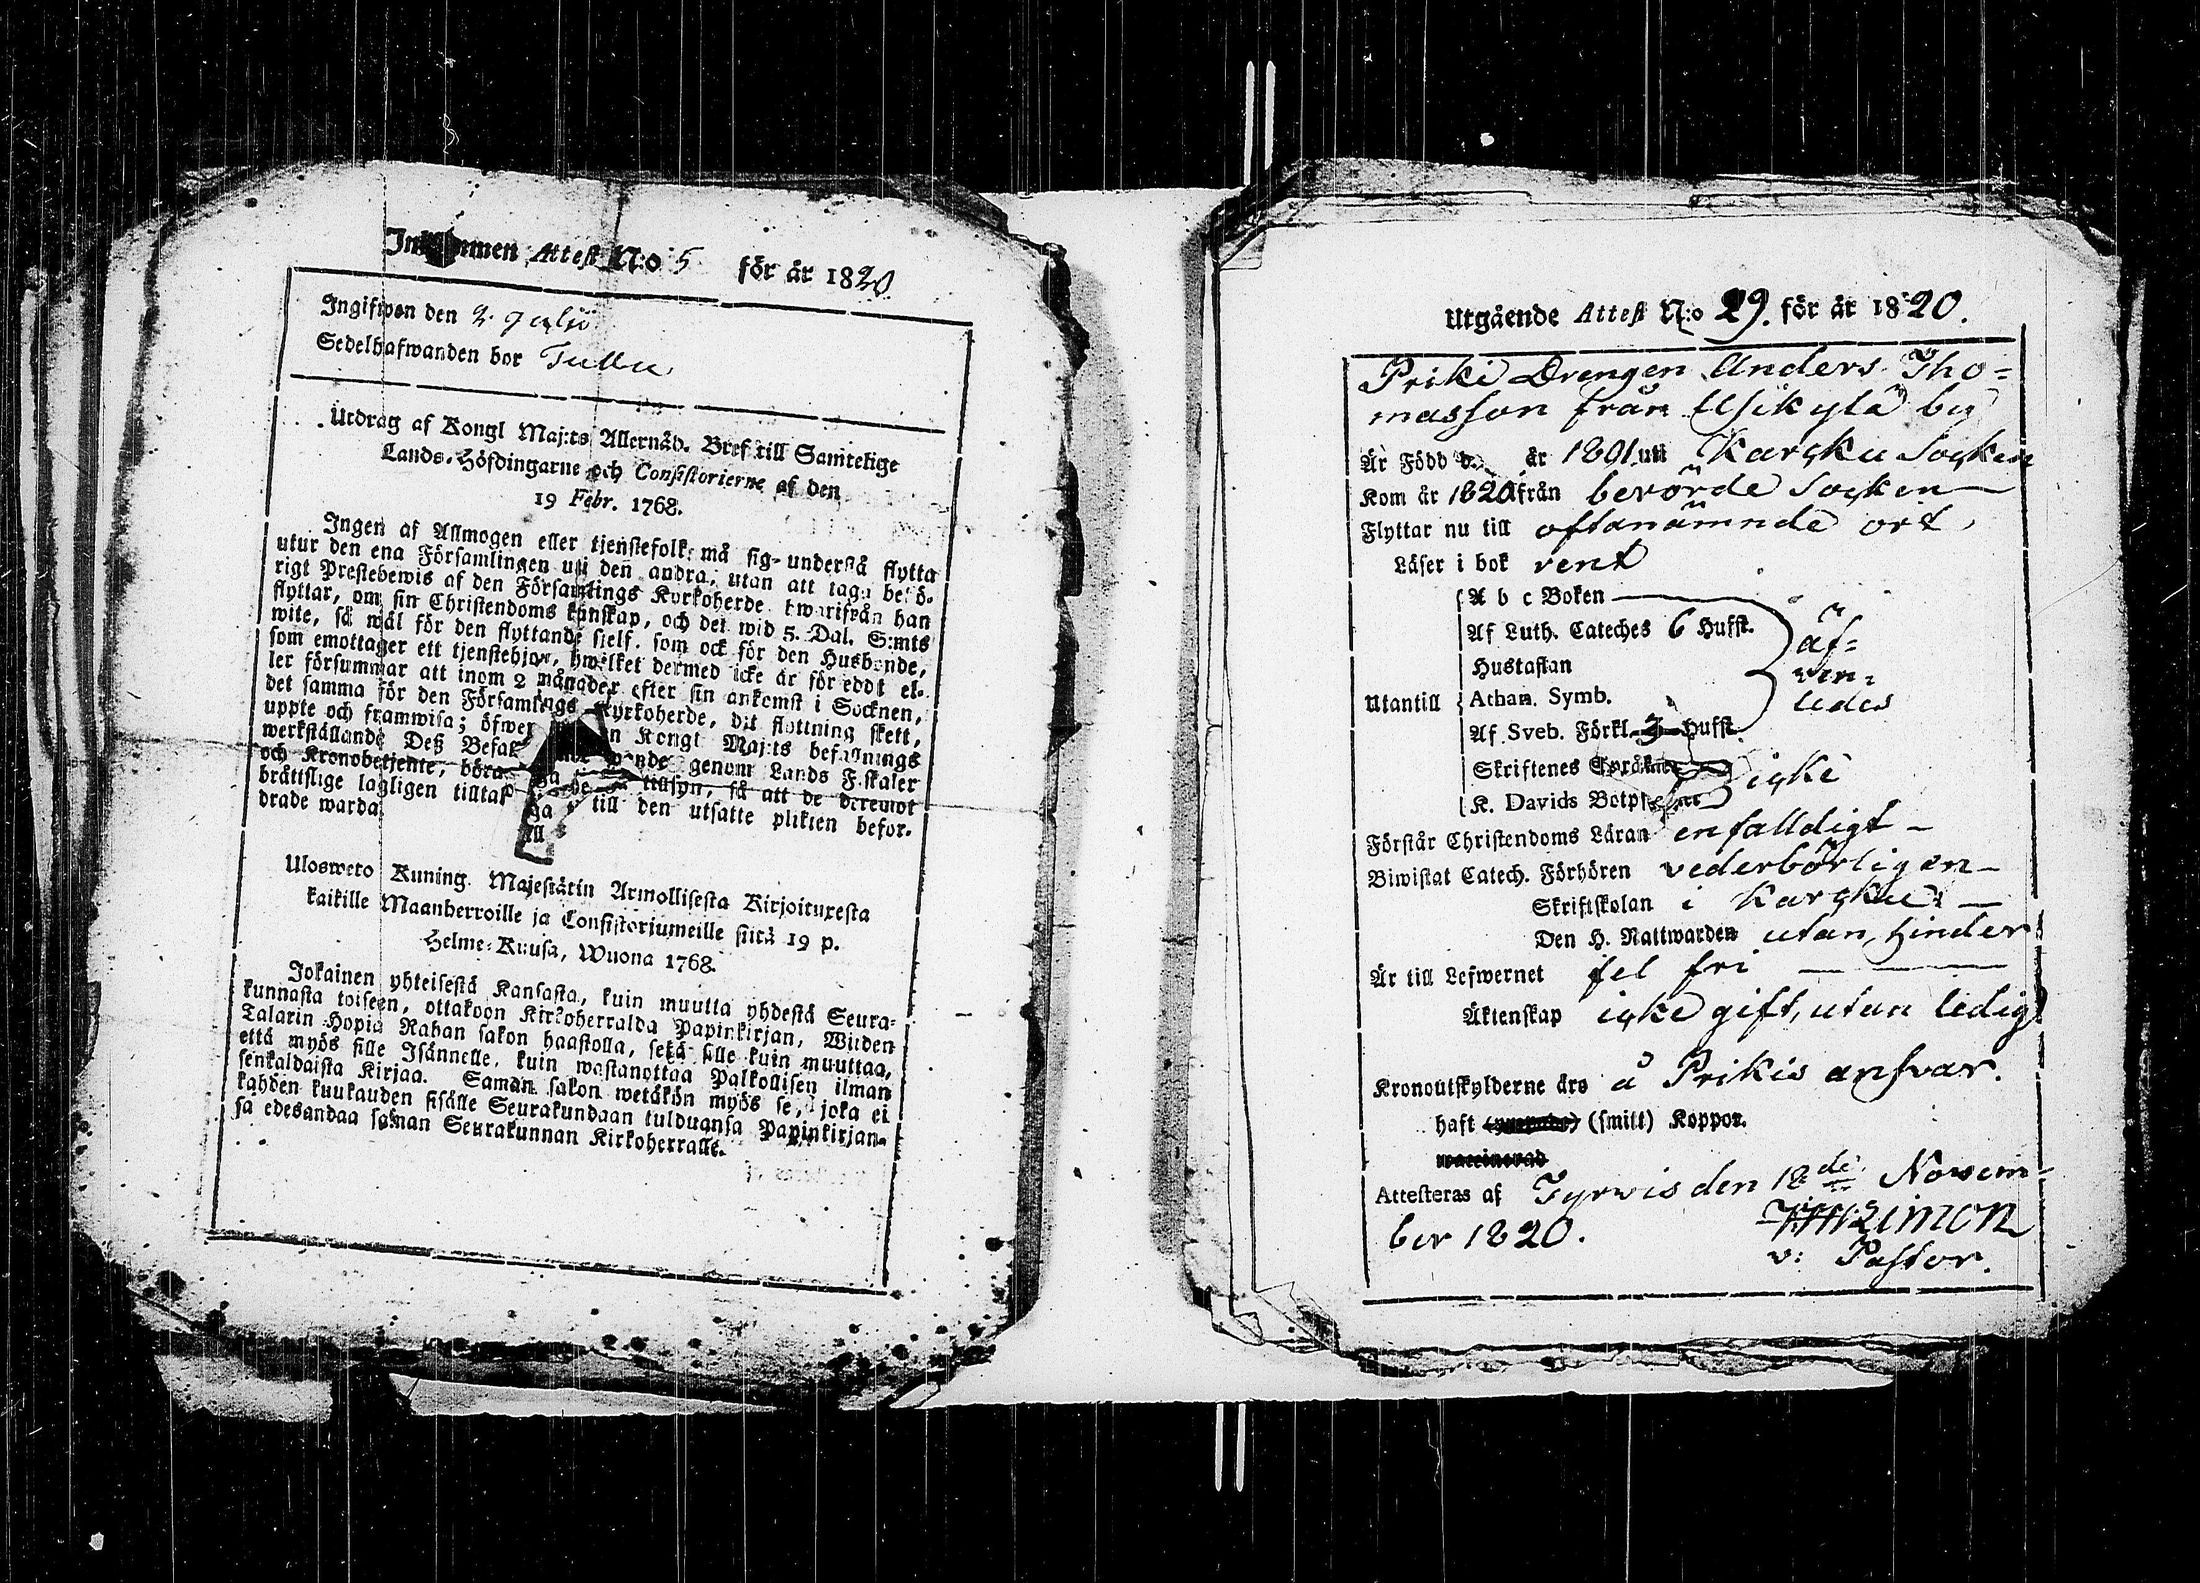 Inkommen Attest N:o 5 för år 1820
Ingifwen den 2 Julii
Sedelhafwanden bor
Utdrag af Kongl Maj:ts Allernåd. Bref till Samtelige
Lands-Höfdingarne och Consistorierne af den
19 Febr. 1768.
Ingen af Allmogen eller tjenstefolk må sig understå flytta
utur den ena Församlingen uti den andra, utan att taga behö-
rigt Prestebewis af den Församlings Kyrkoherde hwarifrån han
flyttar, om sin Christendoms kunskap, och det wid 5. Dal. S:mts
wite, så wäl för den flyttande sielf, som ock för den Husbonde,
som emottager ett tjenstehjon, hwilket dermed icke är försedt el-
ler försummar att inom 2 månader efter sin ankomst i Socknen,
det samma för den Församlings Kyrkoherde, dit flyttning skett,
uppte och framwisa; öfwer Kongl Maj:ts befallnings
werkställande Deß genom Lands F.skaler
och Kronobetjente, böra tillsyn, så att de deremot
bråttslige lagligen tilltal till den utsatte plikten befor-
drade warda.
Ulosweto Kuning. Majestätin Armollisesta Kirjoituxesta
kaikille Maanherroille ja Consistoriumeille siitä 19 p.
Helme-Kuusa, Wuona 1768.
Jokainen yhteisestä Kansasta, kuin muutta yhdestä Seura-
kunnasta toiseen, ottakoon Kirkoherralda Papinkirjan, Wiiden
Talarin Hopia Rahan sakon haastolla, sekä sille kuin muuttaa,
että myös sille Isännelle, kuin wastanottaa Palkollisen ilman
senkaldaista Kirjaa. Saman sakon wetäkön myös se, joka ei
kahden kuukauden sisälle Seurakundaan tulduansa Papinkirjan-
sa edesandaa saman Seurakunnan Kirkoherralle.
Utgående Attest N:o 29. för år 1820.
Priki Drengen Anders Tho=
masson från Usikylä by
Är Född d. år 1801 uti Karcku Socken
Kom år 1820 från berörde Socken
Flyttar nu till oftanämnde ort,
Läser i bok rent
A b c Boken
Af Luth. Cateches 6 Hufst. äf=
Hustaflan ven=
Utantill Athan. Symb. ledes
Af Sveb. Förkl. 3 Hufst.
Skriftenes Språken icke
K. Davids Botpsalmer
Förstår Christendoms Läran enfalldigt
Biwistat Catech. Förhören vederbörligen
Skriftskolan i Karcku
Den H. Nattwarden utan hinder
Är till Lefwernet fel fri
Äktenskap icke gift, utan ledig
Kronoutskylderne äro å Prikis answar.
haft (smitt) Koppor.
Attesteras af Tyrvis den 18de Novem-
ber 1820.
v: Pastor.